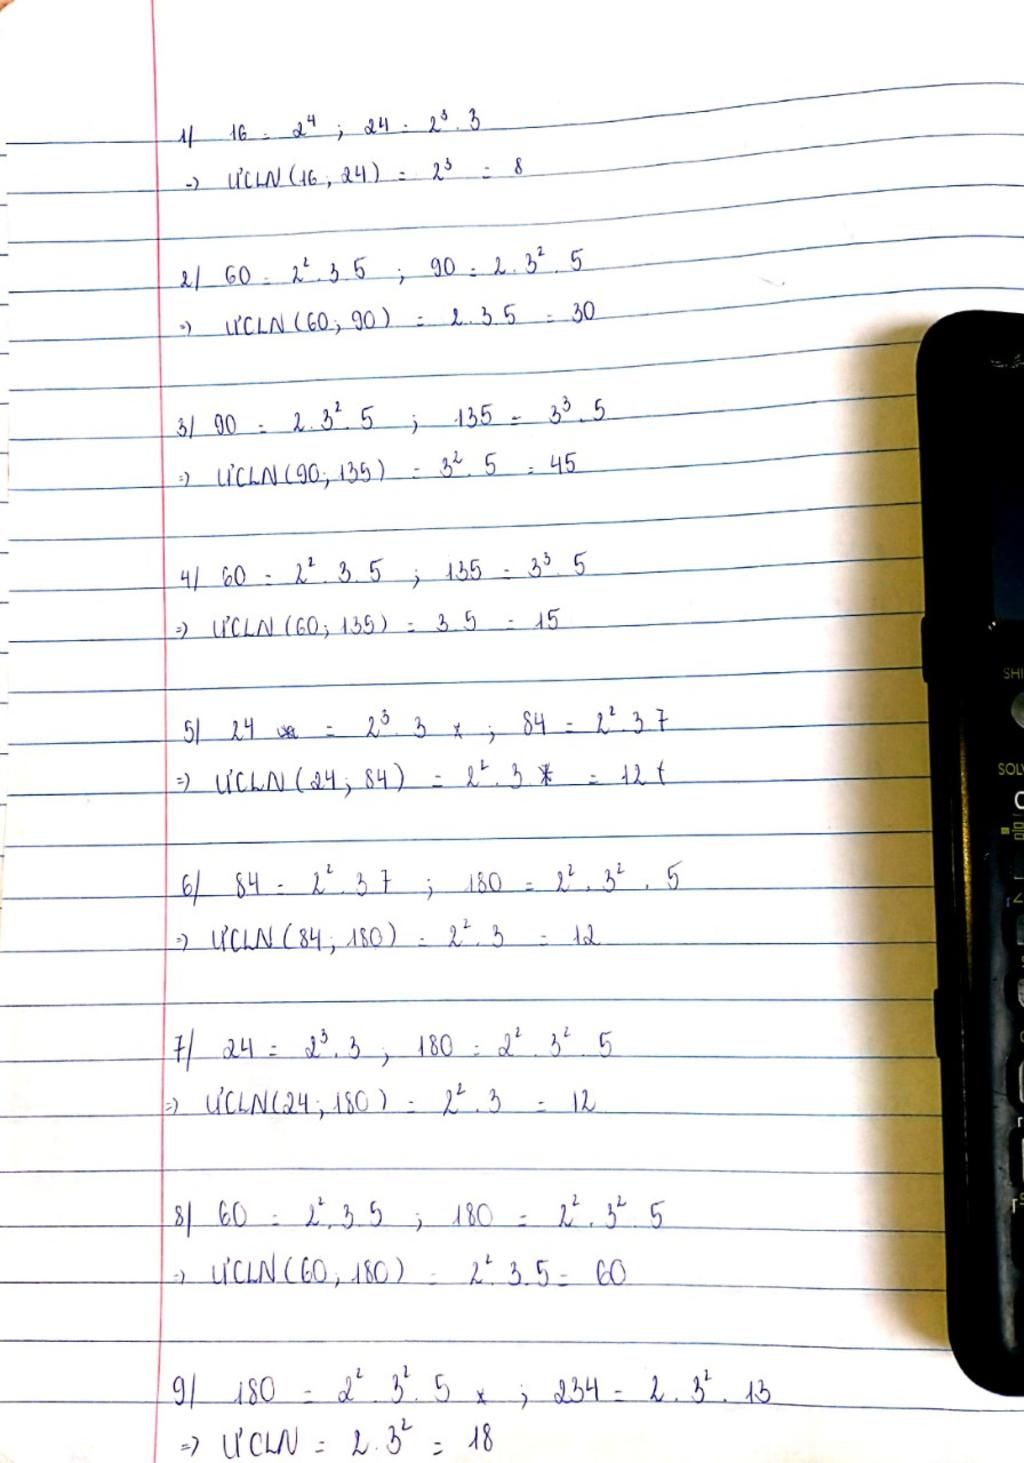 1/ 16 = 2⁴ ; 24 = 2³ . 3
=> ƯCLN (16 ; 24) = 2³ = 8
2/ 60 = 2² . 3 5 ; 90 = 2 . 3² . 5
=> ƯCLN (60 ; 90) = 2 . 3 5 = 30
3/ 90 = 2 . 3² . 5 ; 135 = 3³ . 5
=> ƯCLN (90 ; 135) = 3² . 5 = 45
4/ 60 = 2² . 3 . 5 ; 135 = 3³ . 5
=> ƯCLN (60 ; 135) = 3 5 = 15
SHI
5/ 24 = 2³ . 3 ; 84 = 2² . 3 7
=> ƯCLN (24 ; 84) = 2² . 3 = 12
SOLV
6/ 84 = 2² . 3 7 ; 180 = 2² . 3² . 5
=> ƯCLN (84 ; 180) = 2² . 3 = 12
7/ 24 = 2³ . 3 ; 180 = 2² . 3² . 5
=> ƯCLN (24 ; 180) = 2² . 3 = 12
8/ 60 = 2² . 3 5 ; 180 = 2² . 3² . 5
=> ƯCLN (60 ; 180) = 2² . 3 . 5 = 60
9/ 180 = 2² . 3² . 5 ; 234 = 2 . 3² . 13
=> ƯCLN = 2 . 3² = 18